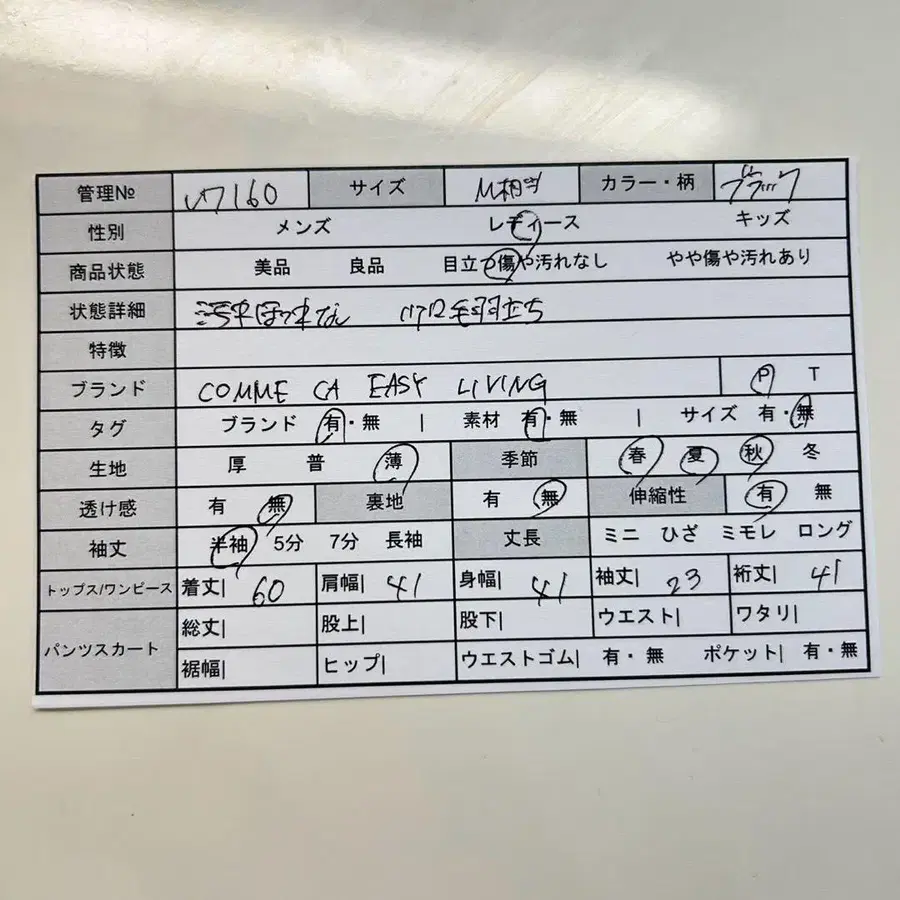 管理№ 17160 サイズ M相当 カラー・柄 ブラック
性別 メンズ レディース キッズ
商品状態 美品 良品 目立つ傷や汚れなし やや傷や汚れあり
状態詳細 毛羽立ち
特徴
ブランド COMME CA EASY LIVING P T
タグ ブランド 有・無 | 素材 有・無 | サイズ 有・無
生地 厚 普 薄 季節 春 夏 秋 冬
透け感 有 無 裏地 有 無 伸縮性 有 無
袖丈 半袖 5分 7分 長袖 丈長 ミニ ひざ ミモレ ロング
トップス/ワンピース 着丈| 60 肩幅| 41 身幅| 41 袖丈| 23 裄丈| 41
パンツスカート 総丈| 股上| 股下| ウエスト| ワタリ|
裾幅| ヒップ| ウエストゴム| 有・無 ポケット| 有・無